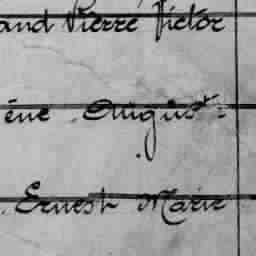 and Pierre Victor
ène Augus-
Ernest Marie